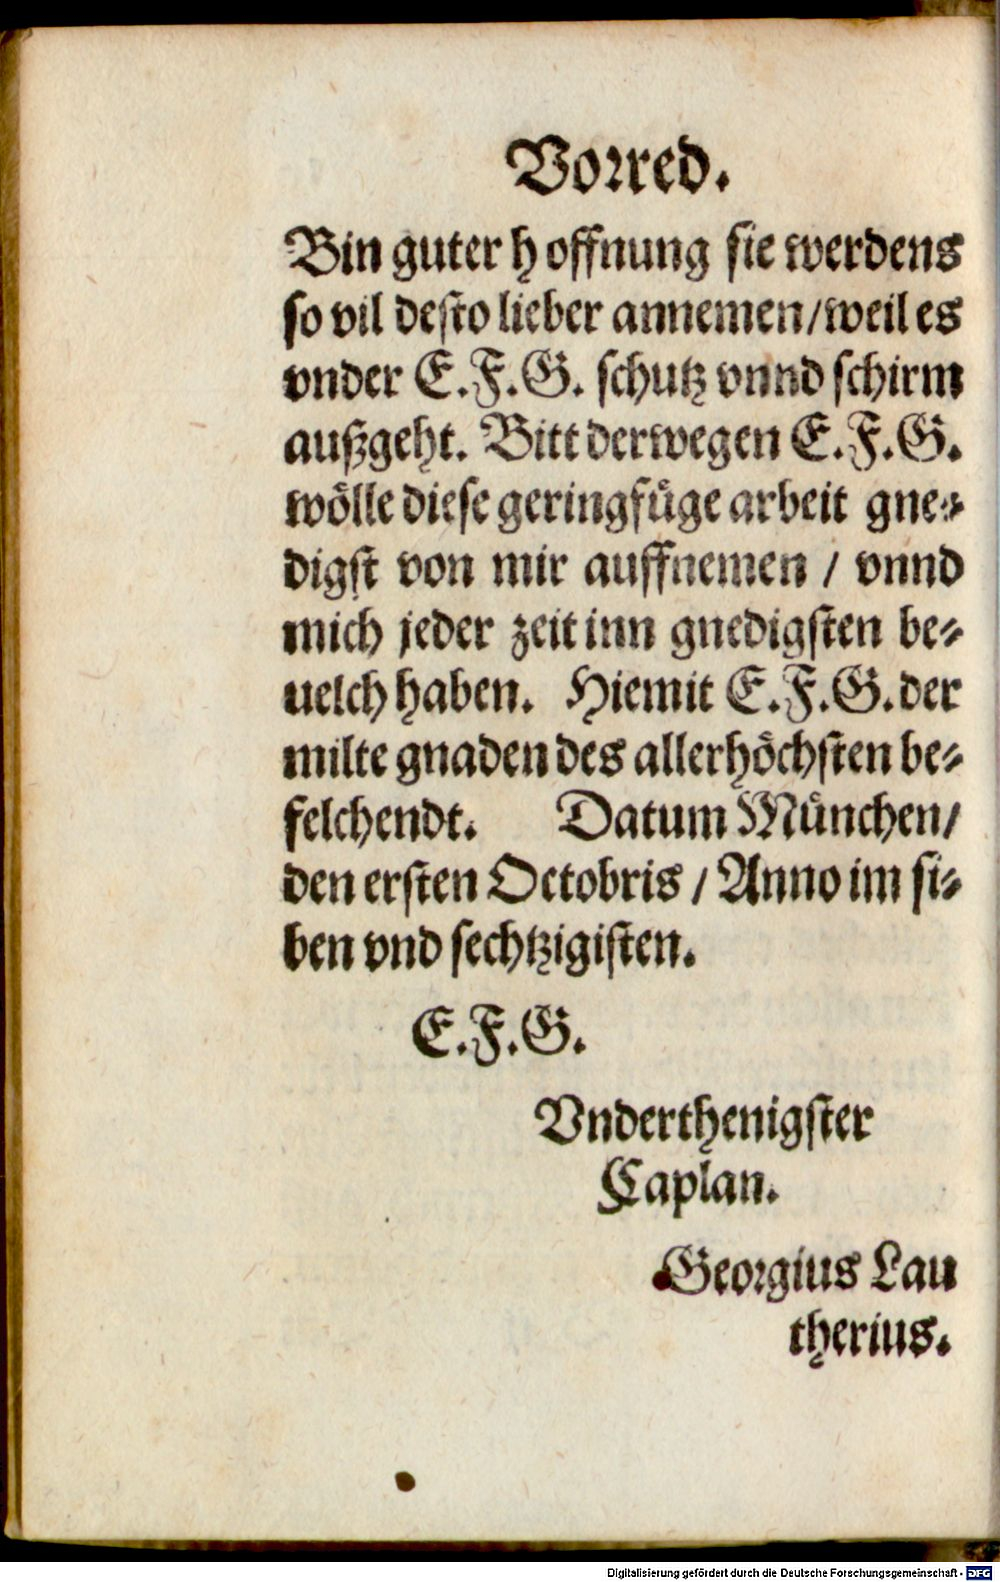 Vorred.
Bin guter hoffnung sie werdens
so vil desto lieber annemen/weil es
vnder E.F.G. schutz vnnd schirm
außgeht. Bitt derwegen E.F.G.
wölle diese geringfüge arbeit gne-
digst von mir auffnemen / vnnd
mich jeder zeit inn gnedigsten be-
uelch haben. Hiemit E.F.G. der
milte gnaden des allerhöchsten be-
felchendt. Datum München/
den ersten Octobris / Anno im si-
ben vnd sechtzigisten.
E.F.G.
Vnderthenigster
Caplan.
Georgius Lau
therius.
Digitalisierung gefördert durch die Deutsche Forschungsgemeinschaft - DFG